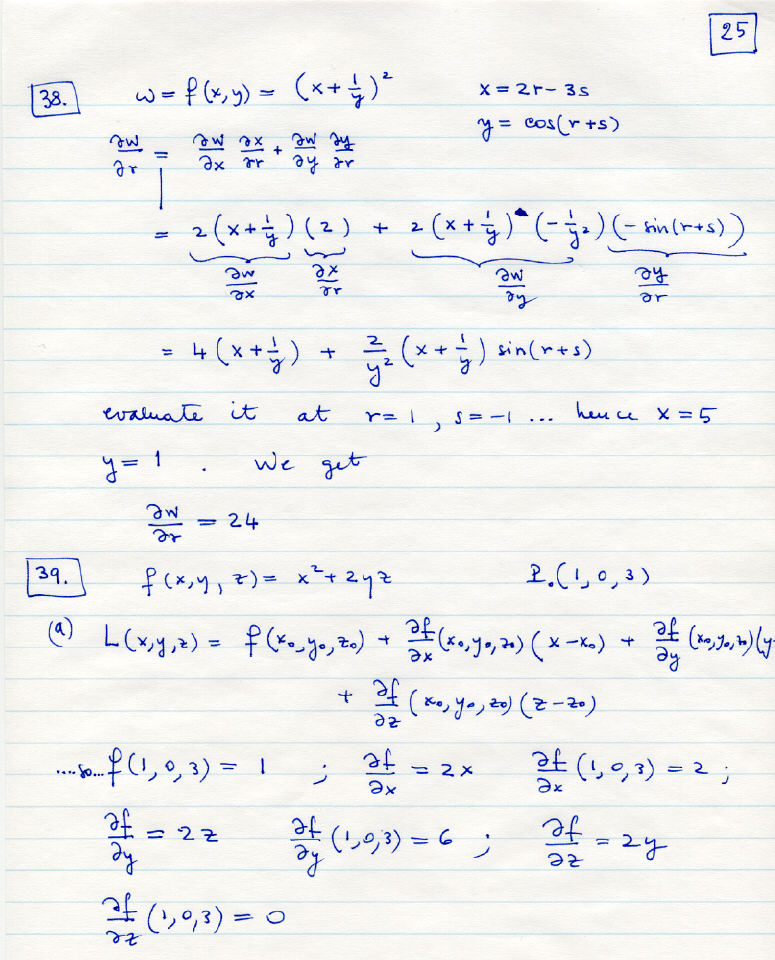 25
38. w = f(x,y) = (x + 1/y)² x = 2r - 3s
y = cos(r+s)
∂w/∂r = ∂w/∂x ∂x/∂r + ∂w/∂y ∂y/∂r
= 2(x + 1/y)(2) + 2(x + 1/y)(-1/y²)(-sin(r+s))
∂w/∂x ∂x/∂r ∂w/∂y ∂y/∂r
= 4(x + 1/y) + 2/y² (x + 1/y) sin(r+s)
evaluate it at r=1, s=-1 ... hence x=5
y=1. We get
∂w/∂r = 24
39. f(x,y,z) = x² + 2yz P₀(1,0,3)
(a) L(x,y,z) = f(x₀,y₀,z₀) + ∂f/∂x (x₀,y₀,z₀)(x-x₀) + ∂f/∂y (x₀,y₀,z₀)(y-
+ ∂f/∂z (x₀,y₀,z₀)(z-z₀)
....so... f(1,0,3) = 1 ; ∂f/∂x = 2x ∂f/∂x (1,0,3) = 2 ;
∂f/∂y = 2z ∂f/∂y (1,0,3) = 6 ; ∂f/∂z = 2y
∂f/∂z (1,0,3) = 0